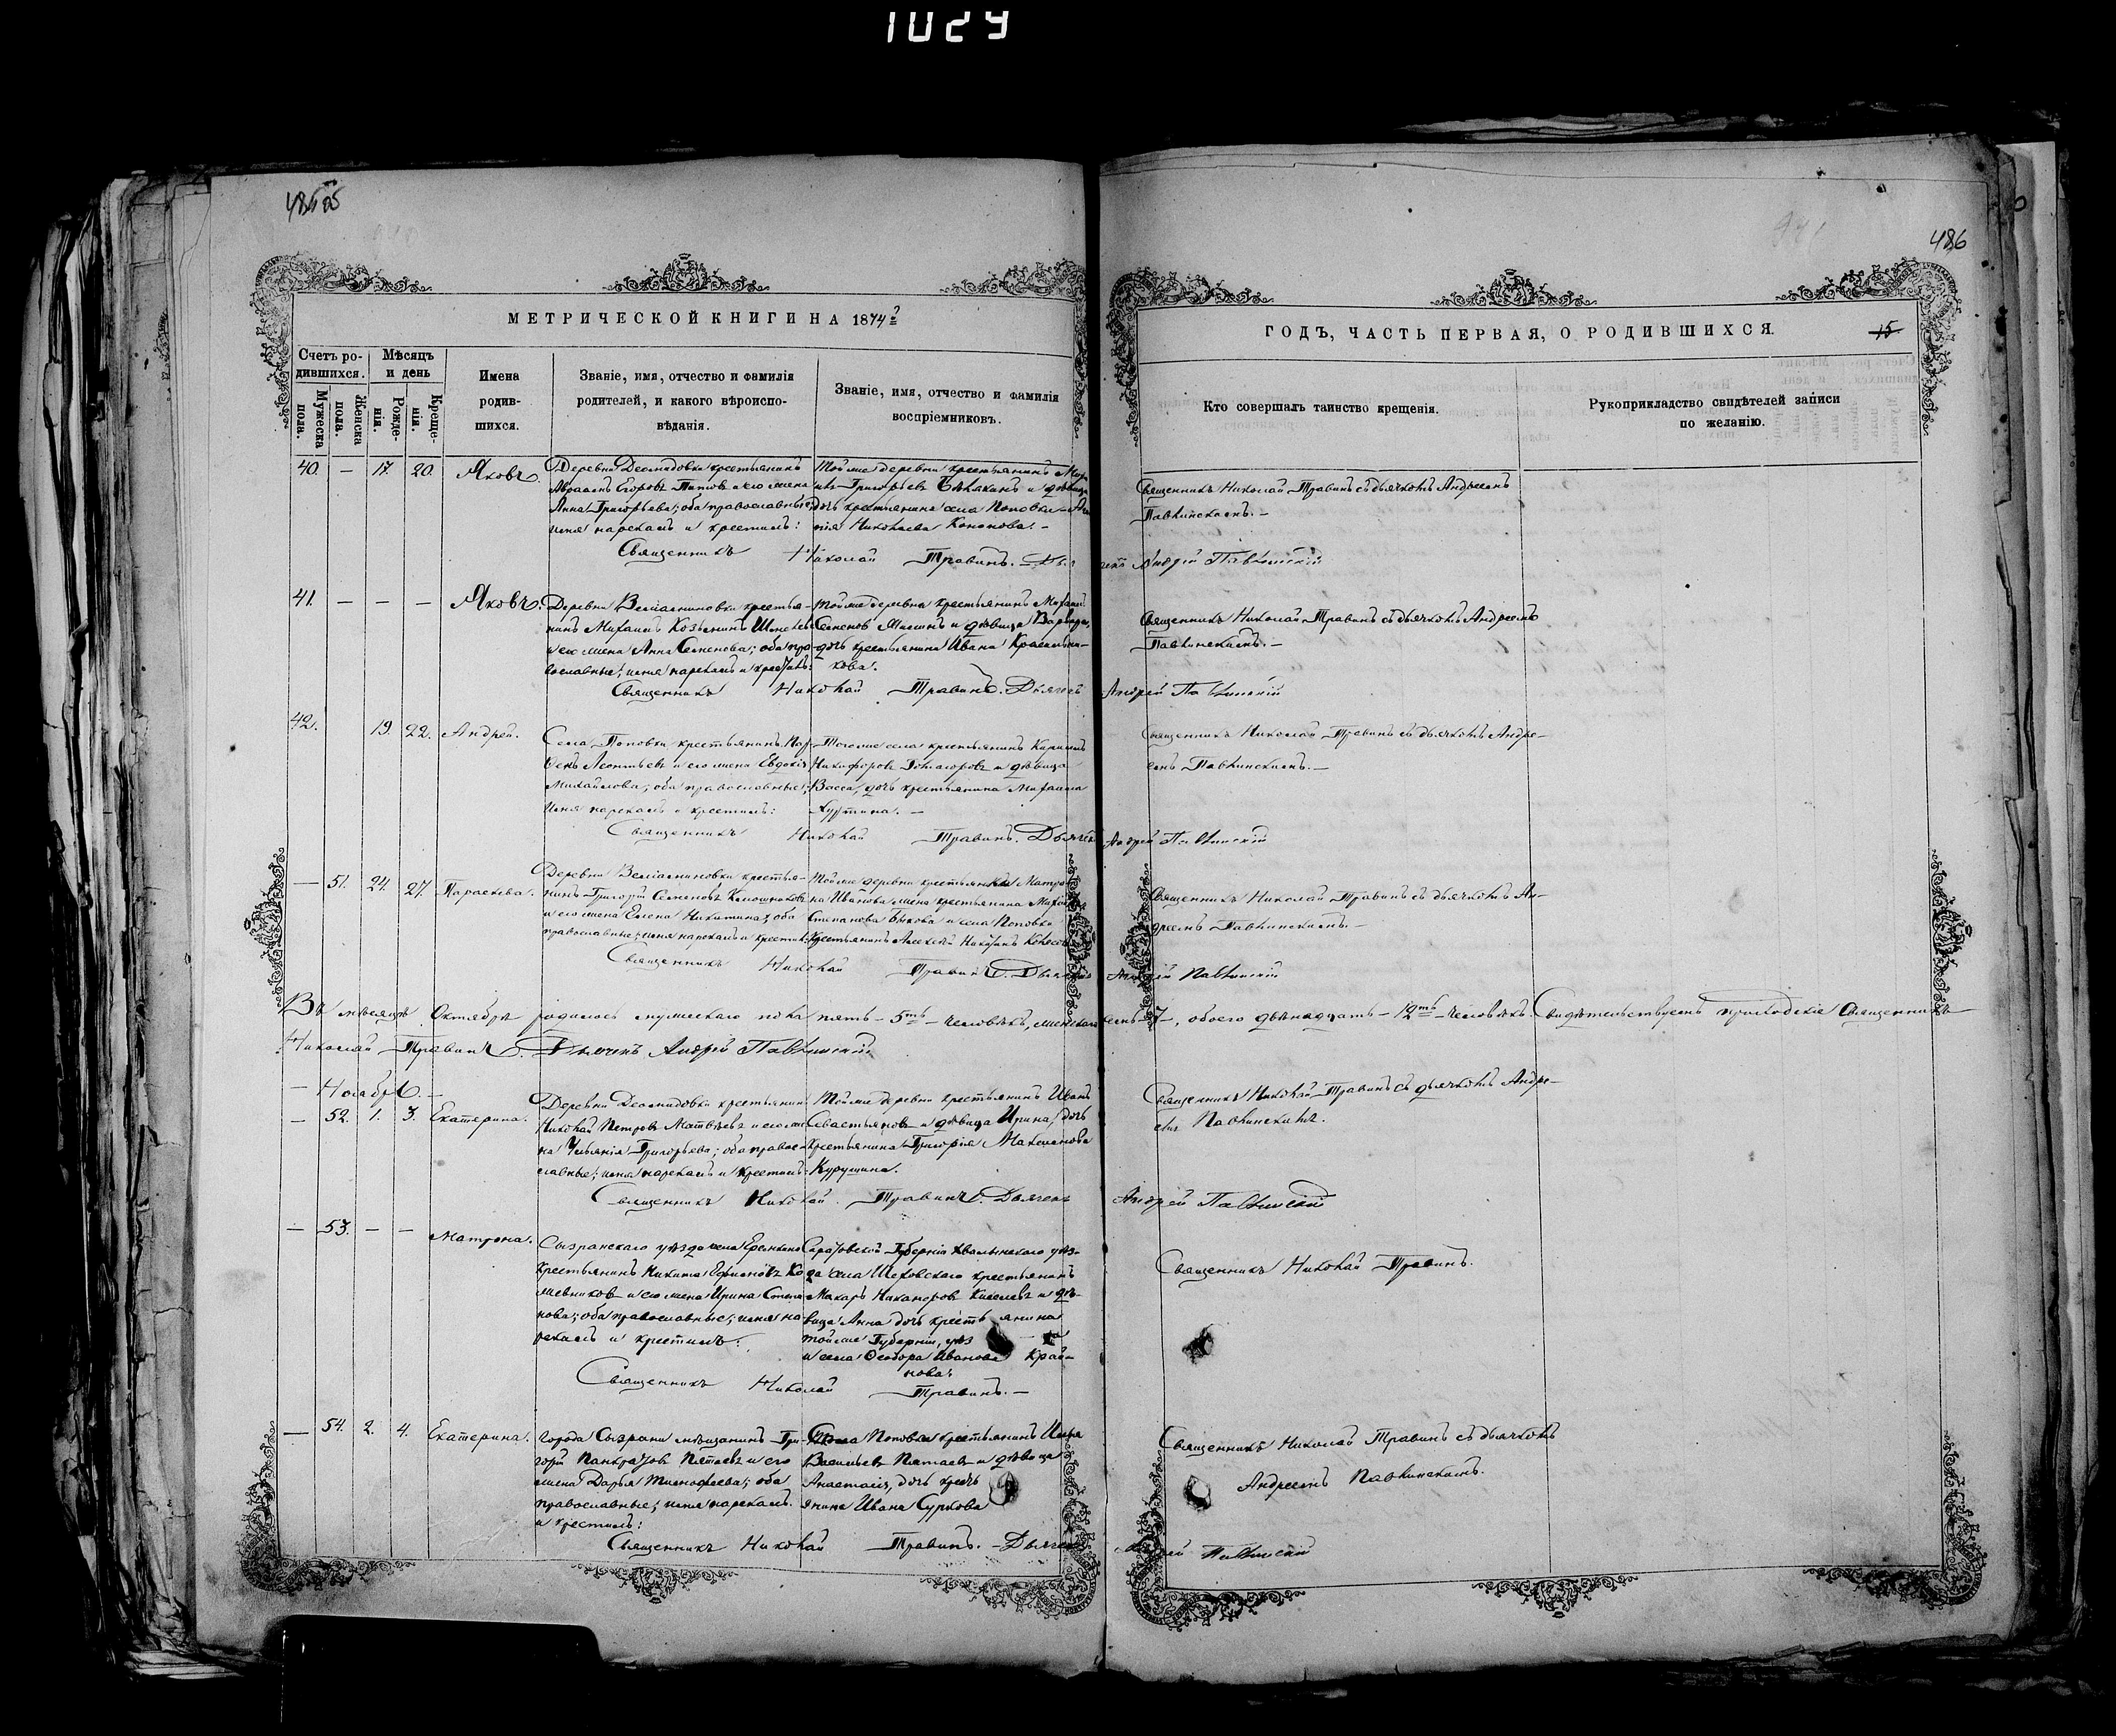 1029
485об
486
МЕТРИЧЕСКОЙ КНИГИ НА 1874й
ГОДЪ, ЧАСТЬ ПЕРВАЯ, О РОДИВШИХСЯ.
15
Счетъ родившихся.
Мужеска пола.
Женска пола.
Мѣсяцъ и день
Рожденія.
Крещенія.
Имена родившихся.
Званіе, имя, отчество и фамилія родителей, и какого вѣроисповѣданія.
Званіе, имя, отчество и фамилія воспріемниковъ.
Кто совершалъ таинство крещенія.
Рукоприкладство свидѣтелей записи по желанію.
40. — 17. 20. Яковъ.
Деревни Деомидовки крестьянинъ
Авраамъ Егоровъ Титовъ и его жена
Анна Григорьева; оба православные;
имя нарекалъ и крестилъ:
Тойже деревни крестьянинъ
Григорьевъ и дѣвица
дочь крестьянина села Поповки
Николаева Кононова. —
Священникъ Николай Травинъ съ дьячкомъ Андреемъ
Павлинскимъ. —
Священникъ Николай Травинъ. — Андрей Павлинскій
41. — — — Яковъ.
Деревни крестья-
нинъ Михаилъ Козьминъ
и его жена Анна Семенова; оба пра-
вославные; имя нарекалъ и крестилъ:
Тойже деревни крестьянинъ Михаилъ
Семеновъ и дѣвица Варвара,
дочь крестьянина Ивана Красильни-
кова.
Священникъ Николай Травинъ съ дьячкомъ Андреемъ
Павлинскимъ. —
Священникъ Николай Травинъ. Дьячекъ Андрей Павлинскій
42. 19. 22. Андрей.
Села Поповки крестьянинъ
Леонтьевъ и его жена Евдокія
Михайлова; оба православные;
имя нарекалъ и крестилъ:
Тогоже села крестьянинъ Кириллъ
Никифоровъ и дѣвица
Васса, дочь крестьянина Михаила
Священникъ Николай Травинъ съ дьячкомъ Андре-
емъ Павлинскимъ. —
Священникъ Николай Травинъ. Дьячекъ Андрей Павлинскій
— 51. 24. 27. Параскева.
Деревни крестья-
нинъ Григорій Семеновъ
и его жена Елена Никитина; оба
православные; имя нарекалъ и крестилъ:
Тойже деревни Матро-
на Иванова жена крестьянина
Степанова Быкова и села Поповки
крестьянинъ Алексѣй
Священникъ Николай Травинъ съ дьячкомъ Ан-
дреемъ Павлинскимъ. —
Священникъ Николай Травинъ. Дьячекъ Андрей Павлинскій
Въ мѣсяцѣ Октябрѣ родилось мужескаго пола пять — 5ть — человѣкъ, женскаго семь — 7 —, обоего двѣнадцать — 12ть — человѣкъ. Свидѣтельствуемъ приходскіе Священникъ
Николай Травинъ. Дьячекъ Андрей Павлинскій
— Ноябрь —
— 52. 1. 3. Екатерина.
Деревни Деомидовки крестьянинъ
Николай Петровъ Матвѣевъ и его же-
на Григорьева; оба право-
славные; имя нарекалъ и крестилъ:
Тойже деревни крестьянинъ Иванъ
Севастьяновъ и дѣвица Ирина, дочь
крестьянина Григорія
Священникъ Николай Травинъ съ дьячкомъ Андре-
емъ Павлинскимъ.
Священникъ Николай Травинъ. Дьячекъ Андрей Павлинскій
— 53. — — Матрона.
Сызранскаго уѣзда села
крестьянинъ Никита
и его жена Ирина
нова; оба православные; имя на-
рекалъ и крестилъ:
Саратовской Губерніи Хвалынскаго уѣз-
да села крестьянинъ
Макаръ Никаноровъ Киселевъ и дѣ-
вица Анна дочь крестьянина
тойже Губерніи, уѣз
и села Ѳеодора Иванова Край-
нова.
Священникъ Николай Травинъ.
Священникъ Николай Травинъ. —
— 54. 2. 4. Екатерина.
Города Сызрани мѣщанинъ Гри-
горій Панкратовъ и его
жена Дарья Тимофеева; оба
православные; имя нарекалъ
и крестилъ:
Села Поповки крестьянинъ Илья
Васильевъ и дѣвица
Анастасія, дочь
Ивана Суркова
Священникъ Николай Травинъ съ дьячкомъ
Андреемъ Павлинскимъ.
Священникъ Николай Травинъ. — Дьячекъ Андрей Павлинскій